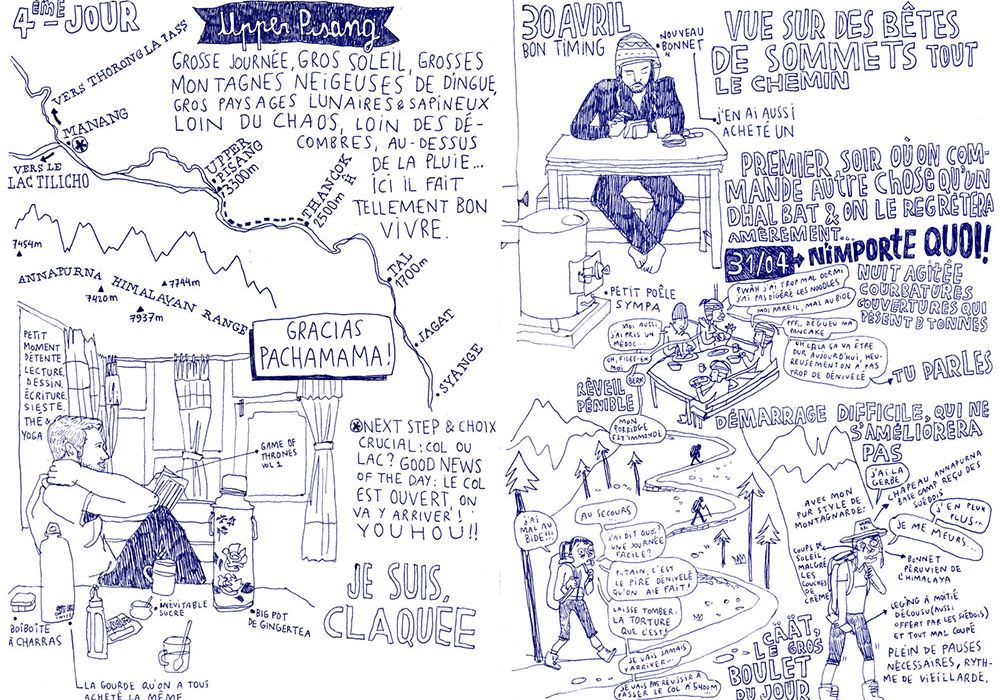 4ÈME JOUR
Upper Pisang
GROSSE JOURNÉE, GROS SOLEIL, GROSSES
MONTAGNES NEIGEUSES DE DINGUE,
GROS PAYSAGES LUNAIRES & SAPINEUX
LOIN DU CHAOS, LOIN DES DÉ-
COMBRES, AU-DESSUS
DE LA PLUIE...
ICI IL FAIT
TELLEMENT BON
VIVRE.
VERS THORONG LA PASS
MANANG
VERS LE
LAC TILICHO
UPPER
PISANG
3300m
THANCOK
H
2500m
TAL
1700m
JAGAT
SYANGE
7454m
ANNAPURNA HIMALAYAN RANGE
7744m
7420m
7937m
GRACIAS
PACHAMAMA!
PETIT
MOMENT
DÉTENTE
LECTURE,
DESSIN,
ÉCRITURE,
SIESTE,
THÉ &
YOGA
GAME OF
THRONES
VOL 1
NEXT STEP & CHOIX
CRUCIAL: COL OU
LAC? GOOD NEWS
OF THE DAY: LE COL
EST OUVERT, ON
VA Y ARRIVER!
YOUHOU!!
JE SUIS
CLAQUÉE
BOIBOÎTE
À CHARRAS
INÉVITABLE
SUCRE
BIG POT
DE GINGERTEA
LA GOURDE QU'ON A TOUS
ACHETÉ LA MÊME
30 AVRIL
BON TIMING
NOUVEAU
BONNET
J'EN AI AUSSI
ACHETÉ UN
VUE SUR DES BÊTES
DE SOMMETS TOUT
LE CHEMIN
PREMIER SOIR OÙ ON COM-
MANDE AUTRE CHOSE QU'UN
DHAL BAT & ON LE REGRÈTERA
AMÈREMENT...
31/04 N'IMPORTE QUOI!
PETIT POÊLE
SYMPA
NUIT AGITÉE
COURBATURES
COUVERTURES QUI
PÈSENT 3 TONNES
PWÂH J'AI TROP MAL DORMI
J'AI PAS DIGÉRÉ CES NOODLES
MOI PAREIL, MAL AU BIDE
MOI AUSSI
J'AI PRIS UN
MÉDOC...
EH, FILES-EN
MOI
BERK
PFF, DÉGUEU MA
PANCAKE
OH LÀ LÀ ÇA VA ÊTRE
DUR AUJOURD'HUI, HEU-
REUSEMENT ON A PAS
TROP DE DÉNIVELÉ
TU PARLES
RÉVEIL
PÉNIBLE
MON
PORRIDGE
EST IMMONDE
DÉMARRAGE DIFFICILE, QUI NE
S'AMÉLIORERA
PAS
J'AI
MAL AU
BIDE!!!
AU SECOURS
J'AI DIT QUOI?
UNE JOURNÉE
FACILE?
PUTAIN, C'EST
LE PIRE DÉNIVELÉ
QU'ON AIE FAIT!
LAISSE TOMBER.
LA TORTURE
QUE C'EST!
JE VAIS JAMAIS
Y ARRIVER...
JE VAIS PAS RÉUSSIR À
PASSER LE COL À 5400m
AVEC MON
PUR STYLE DE
MONTAGNARDE:
J'AI LA
GERBE
CHAPEAU ANNAPURNA
BASE CAMP REÇU DES
SUÉDOIS
J'EN PEUX
PLUS...
JE ME MEURS...
COUPS DE
SOLEIL
MALGRÉ
LES
COUCHES
DE
CRÈME
BONNET
PÉRUVIEN DE
L'HIMALAYA
LEGGING À MOITIÉ
DÉCOUSU (AUSSI
OFFERT PAR LES SUÉDOIS)
ET TOUT MAL COUPÉ
PLEIN DE PAUSES
NÉCESSAIRES, RYTH-
ME DE VIEILLARDE.
LE GROS
BOULET
DU JOUR